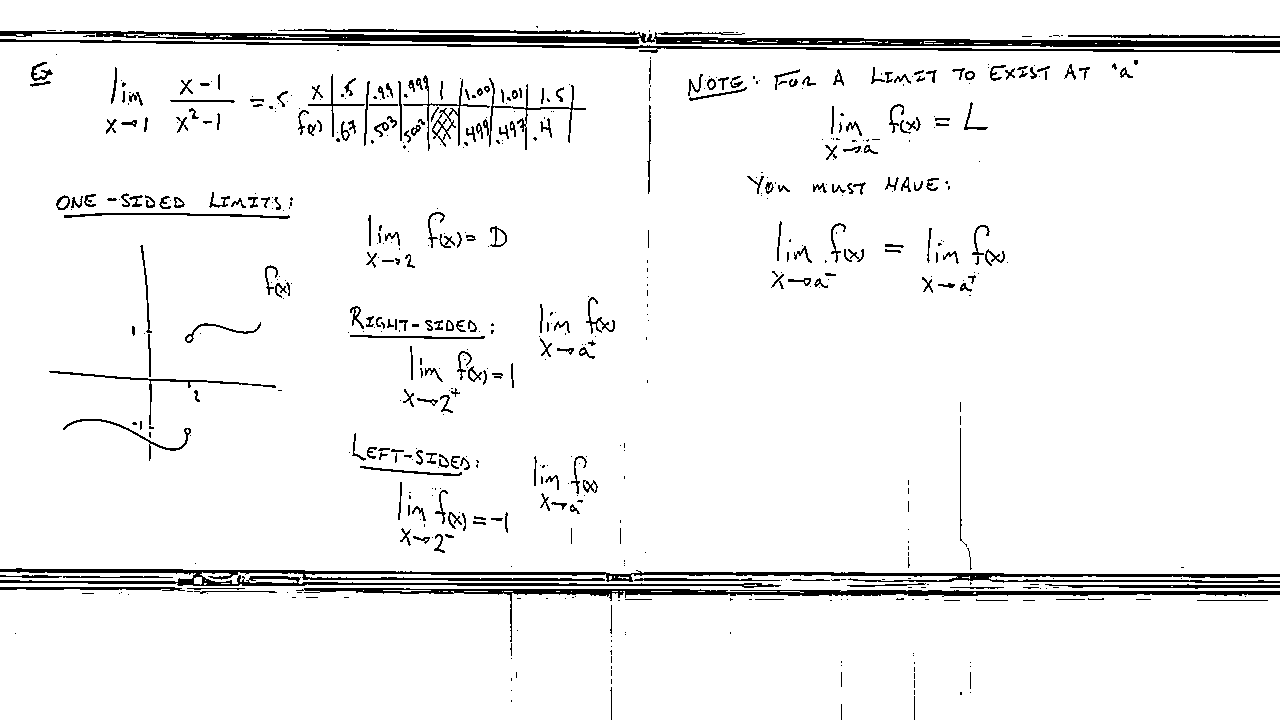 Ex
lim x→1 (x-1)/(x²-1) = .5
x | .5 | .99 | .999 | 1 | 1.001 | 1.01 | 1.5 |
f(x) | .67 | .503 | .5002 | | .499 | .497 | .4 |
ONE-SIDED LIMITS:
f(x)
1
2
-1
lim x→2 f(x) = D
RIGHT-SIDED: lim x→a⁺ f(x)
lim x→2⁺ f(x) = 1
LEFT-SIDED: lim x→a⁻ f(x)
lim x→2⁻ f(x) = -1
NOTE: FOR A LIMIT TO EXIST AT "a"
lim x→a f(x) = L
YOU MUST HAVE:
lim x→a⁻ f(x) = lim x→a⁺ f(x)